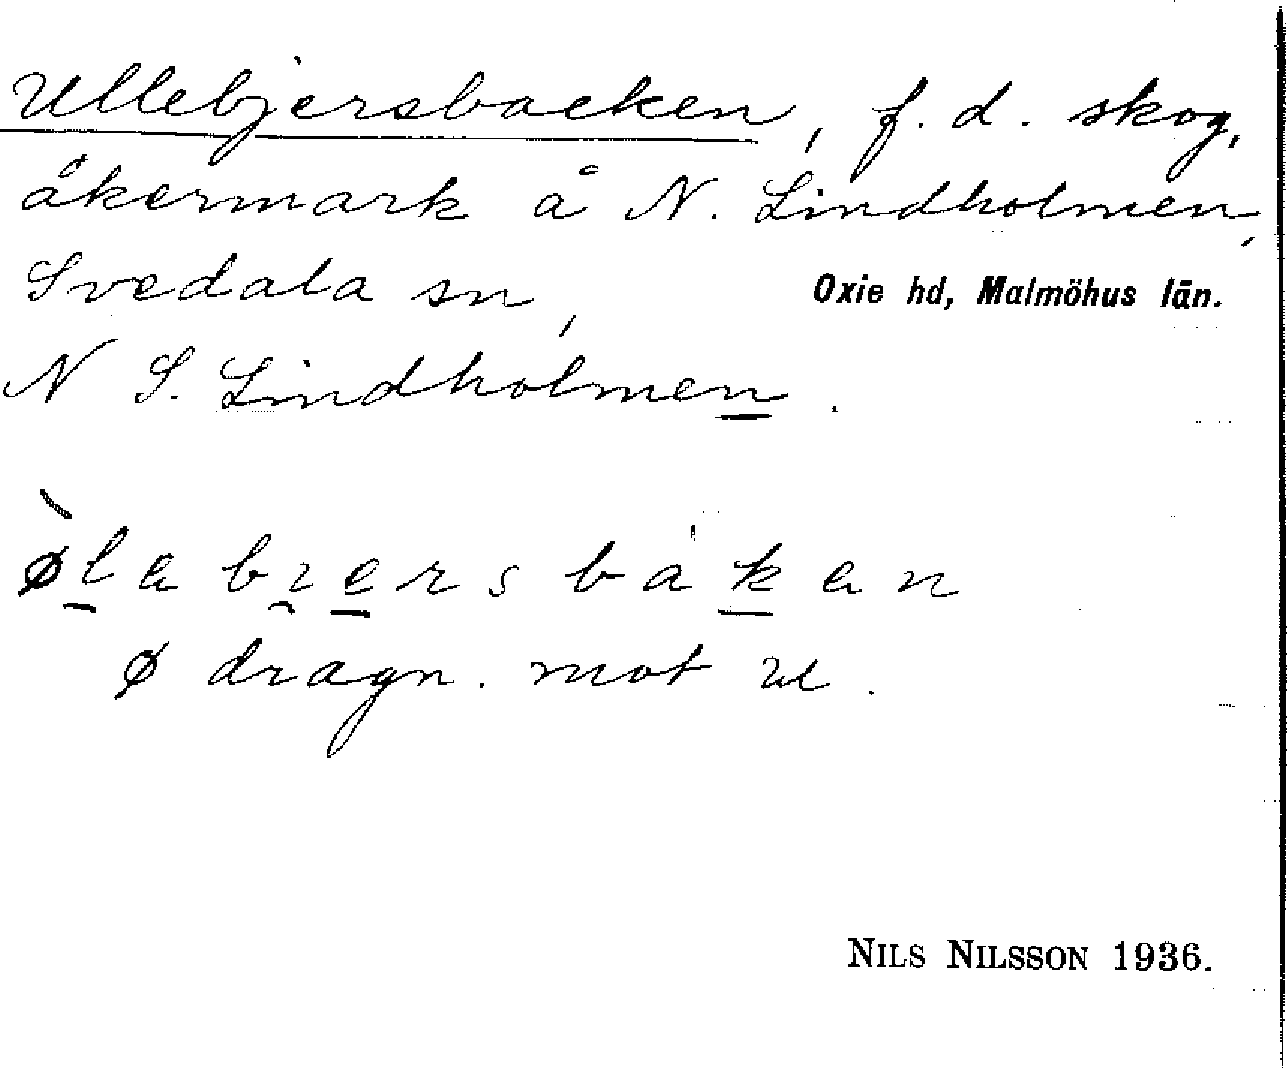 Ullebjersbacken, f. d. skog,
åkermark å N. Lindholmen,
Svedala sn, Oxie hd, Malmöhus län.
N S. Lindholmen.
ø̀la bɿersbakan
ø dragn. mot u.
NILS NILSSON 1936.